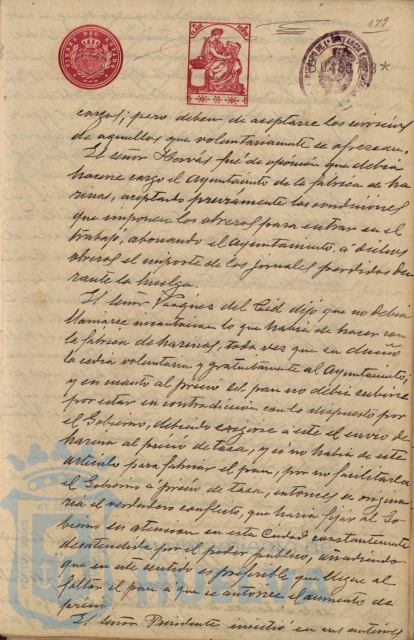 179
TIMBRE DEL ESTADO
cargos; pero deben de aceptarse los servicios
de aquellos que voluntariamente se ofrezcan.
El señor Hervás fué de opinión que debia
hacerse cargo el Ayuntamiento de la fábrica de ha
rinas, aceptando previamente las condiciones
que imponen los obreros para entrar en el
trabajo, abonando el Ayuntamiento, a dichos
obreros el importe de los jornales perdidos du
rante la huelga.
El señor Vazquez del Cid dijo que no debia
llamarse incautación lo que habia de hacer con
la fábrica de harinas, toda vez que su dueño
la cedia voluntaria y gratuitamente al Ayuntamiento;
y en cuanto al precio del pan no debia subirse
por estar en contradicción con lo dispuesto por
el Gobierno, debiendo exigirse a este el envio de
harina al precio de tasa, y si no habia de este
artículo para fabricar el pan, por no facilitarla
el Gobierno a precio de tasa, entonces se origina
ria el verdadero conflicto, que haria fijar al Go
bierno su atención en esta Ciudad constantemente
desatendida por el poder público, añadiendo
que en este sentido es preferible que llegue al
faltar el pan a que se autorice el aumento de
precio.
El señor Presidente insistió en sus anteriores